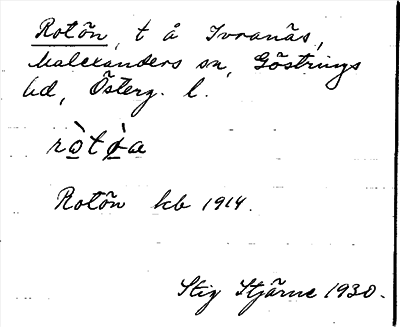 Rotön, t å Ivranäs,
Malexanders sn, Göstrings
hd, Österg. l.
ròtø̀a
Rotön kb 1914.
Stig Stjärne 1930.